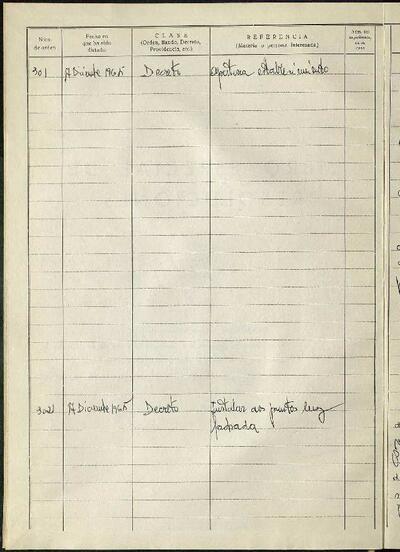 Núm. de orden
Fecha en que ha sido dictado
CLASE (Orden, Bando, Decreto, Providencia, etc.)
REFERENCIA (Materia o persona interesada)
301 17 Diciembre 1965 Decreto apertura establecimiento
302 17 Diciembre 1965 Decreto Instalar dos puntos luz
fachada